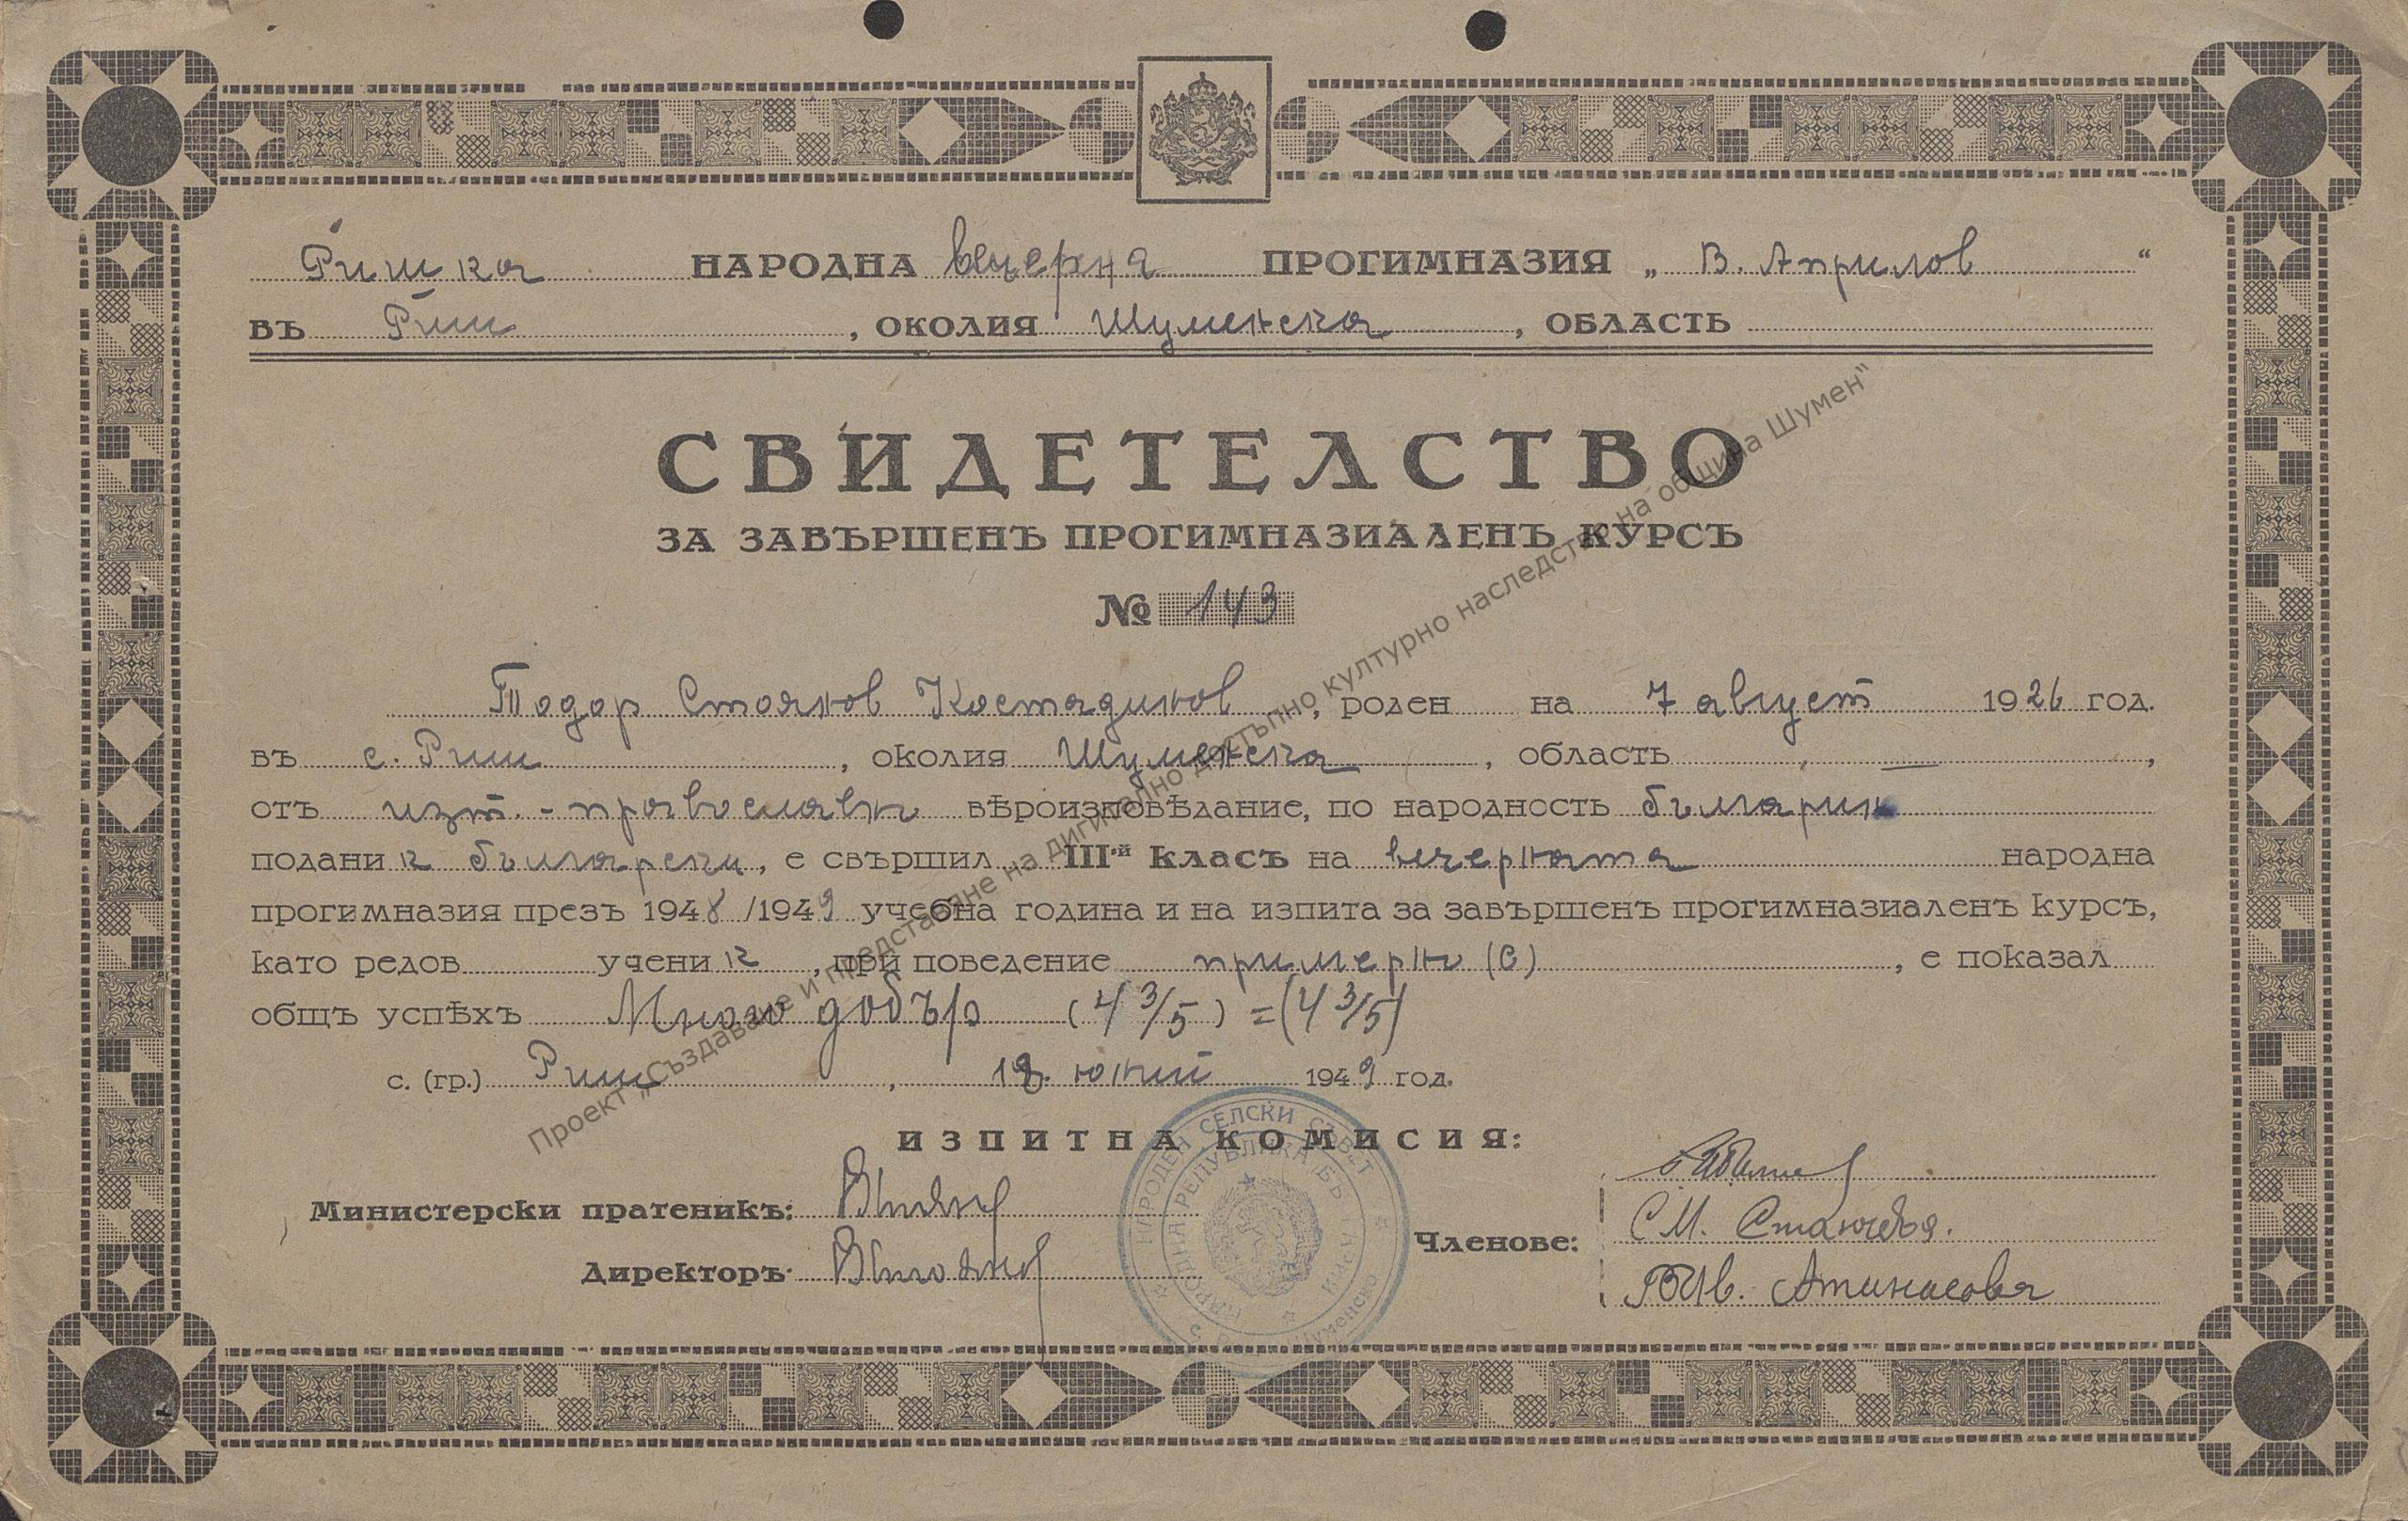 Ришка НАРОДНА вечерна ПРОГИМНАЗИЯ „ В. Априлов “
ВЪ Риш , ОКОЛИЯ Шуменска , ОБЛАСТЬ
СВИДЕТЕЛСТВО
ЗА ЗАВЪРШЕНЪ ПРОГИМНАЗИАЛЕНЪ КУРСЪ
№ 143
Тодор Стоянов Костадинов , роден на 7 август 1926 год.
въ с. Риш , околия Шуменска , область — ,
отъ изт.-православно вѣроизповѣдание, по народность българин
подани к български , е свършил IIIй Класъ на вечерната народна
прогимназия презъ 1948/1949 учебна година и на изпита за завършенъ прогимназиаленъ курсъ,
като редов ученик , при поведение примерно (6) , е показал
общъ успѣхъ Много добър (4 3/5) = (4 3/5)
с. (гр.) Риш , 18. юний 1949 год.
ИЗПИТНА КОМИСИЯ:
Министерски пратеникъ:
Директоръ:
Членове:
С М. Станчева.
Ив. Атанасова
НАРОДЕН СЕЛСКИ СЪВЕТ
НАРОДНА РЕПУБЛИКА БЪЛГАРИЯ
Шуменско
Проект „Създаване и представяне на дигитално достъпно културно наследство на община Шумен“